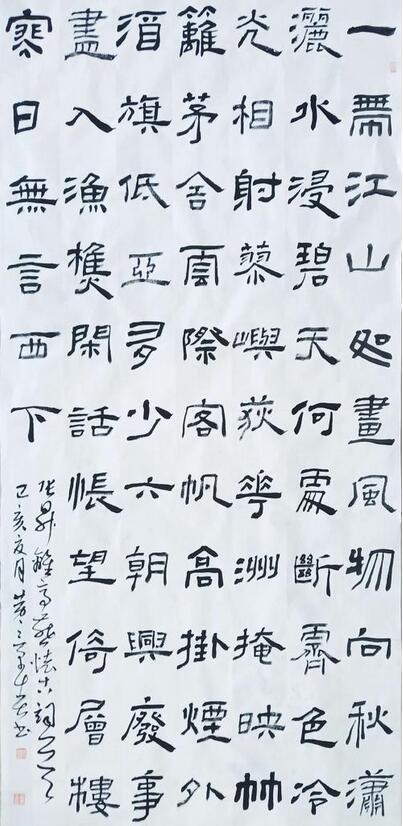 一帶江山如畫風物向秋瀟
灑水浸碧天何處斷霽色冷
光相射蓼嶼荻華洲掩映竹
籬茅舍雲際客帆高掛煙外
酒旗低亞多少六朝興廢事
盡入漁樵閑話悵望倚層樓
寒日無言西下
張昇離亭燕懷古詞
己亥夏月